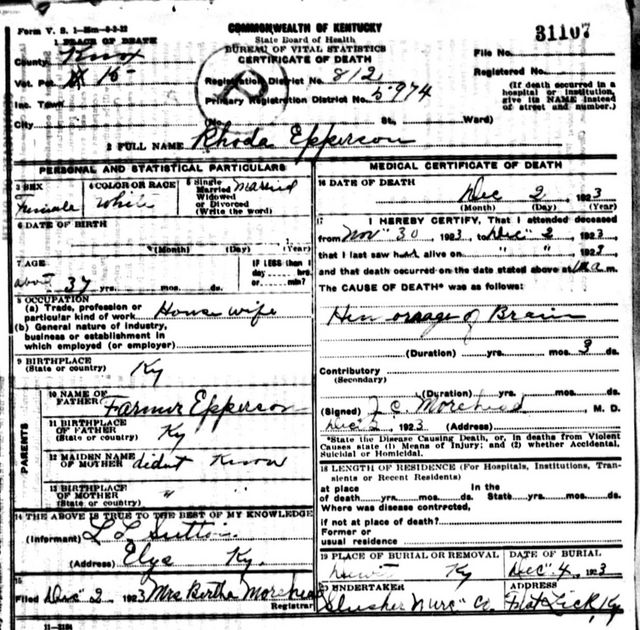 Form V. S. 1-
COMMONWEALTH OF KENTUCKY
State Board of Health
BUREAU OF VITAL STATISTICS
CERTIFICATE OF DEATH
31107
1 PLACE OF DEATH
County Knox
Vot. Pct. # 15
Inc. Town
City
Registration District No. 812
Primary Registration District No. 5974
(No. St., Ward)
File No.
Registered No.
(If death occurred in a
hospital or institution,
give its NAME instead
of street and number.)
2 FULL NAME Rhoda Epperson
PERSONAL AND STATISTICAL PARTICULARS
3 SEX
Female
4 COLOR OR RACE
White
5 Single
Married
Widowed
or Divorced
(Write the word)
Married
6 DATE OF BIRTH
(Month) (Day) (Year)
7 AGE
about 37 yrs. mos. ds.
IF LESS than 1
day hrs.
or min.?
8 OCCUPATION
(a) Trade, profession or
particular kind of work House wife
(b) General nature of industry,
business or establishment in
which employed (or employer)
9 BIRTHPLACE
(State or country) Ky
PARENTS
10 NAME OF
FATHER Farmer Epperson
11 BIRTHPLACE
OF FATHER
(State or country) Ky
12 MAIDEN NAME
OF MOTHER didnt Know
13 BIRTHPLACE
OF MOTHER " "
(State or country)
14 THE ABOVE IS TRUE TO THE BEST OF MY KNOWLEDGE
(Informant) L L Sutton
(Address) Elys Ky.
15
Filed Dec 2 1923 Mrs Bertha Morehead
Registrar
MEDICAL CERTIFICATE OF DEATH
16 DATE OF DEATH
Dec 2 1923
(Month) (Day) (Year)
17 I HEREBY CERTIFY, That I attended deceased
from Nov 30 1923 to Dec 2 1923
that I last saw alive on " " 1923
and that death occurred on the date stated above at m.
The CAUSE OF DEATH* was as follows:
Hemorrage of Brain
(Duration) yrs. mos. 3 ds.
Contributory
(Secondary)
(Duration) yrs. mos. ds.
(Signed) J. C. Morehead M. D.
Dec 2 1923 (Address)
*State the Disease Causing Death, or, in deaths from Violent
Causes state (1) Means of Injury; and (2) whether Accidental,
Suicidal or Homicidal.
18 LENGTH OF RESIDENCE (For Hospitals, Institutions, Tran-
sients or Recent Residents)
at place In the
of death yrs. mos. ds. State yrs. mos. ds.
Where was disease contracted,
if not at place of death?
Former or
usual residence
19 PLACE OF BURIAL OR REMOVAL
Ky
DATE OF BURIAL
Dec 4 1923
20 UNDERTAKER
Slusher
ADDRESS
Flat Lick Ky